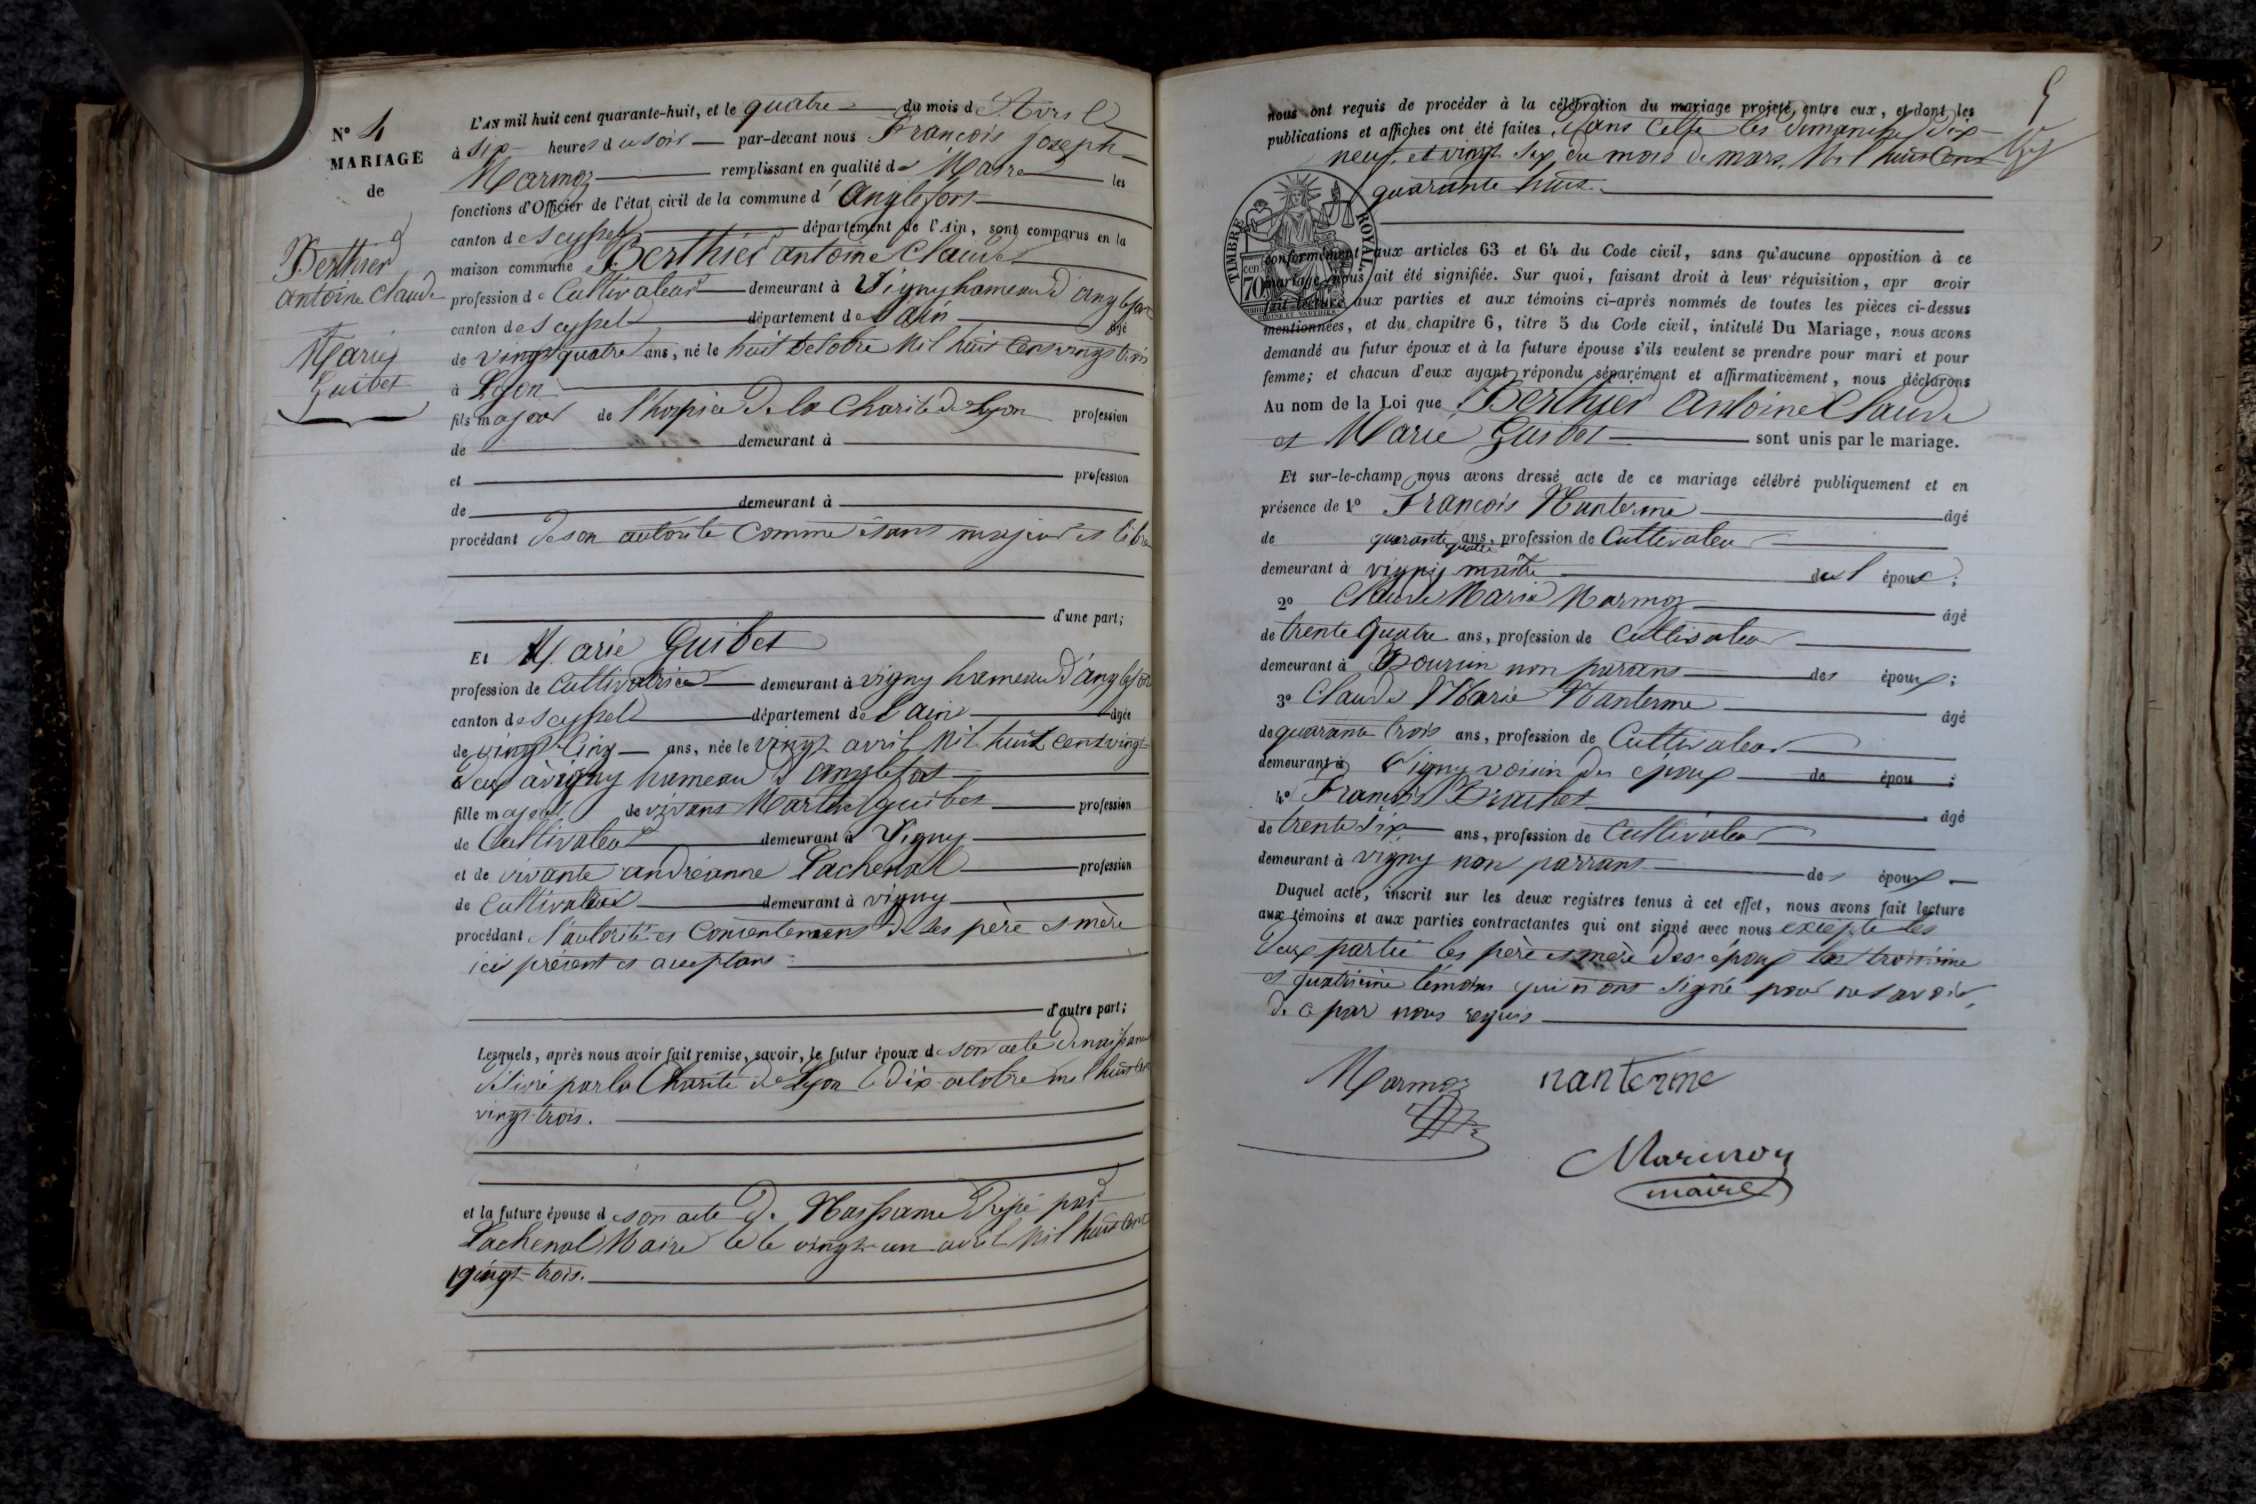 N° 4
MARIAGE
de
Berthier
antoine Claude
Marie
Guibet
L'AN mil huit cent quarante-huit, et le quatre du mois d'Avril
à six heures du soir par-devant nous François Joseph
Marmoz remplissant en qualité de Maire les
fonctions d'Officier de l'état civil de la commune d'Anglefort
canton de Seyssel département de l'Ain, sont comparus en la
maison commune Berthier antoine Claude
profession de Cultivateur demeurant à Vigny hameau d'anglefort
canton de Seyssel département de l'ain âgé
de vingt quatre ans, né le huit octobre Mil huit cent vingt trois
à Lyon
fils majeur de l'hospice De la Charité de Lyon profession
de demeurant à
et profession
de demeurant à
procédant de son autorité comme étant majeur et libre
d'une part;
Et Marie Guibet
profession de Cultivatrice demeurant à vigny hameau d'anglefort
canton de Seyssel département de l'ain âgée
de vingt Cinq ans, née le vingt avril Mil huit cent vingt
deux à vigny hameau d'anglefort
fille majeur de vivant Guibet profession
de Cultivateur demeurant à Vigny
et de vivante andréanne Lachenal profession
de Cultivateur demeurant à vigny
procédant l'autorité et Consentement de ses père et mère
ici présent et acceptant
d'autre part;
Lesquels, après nous avoir fait remise, savoir, le futur époux de son acte de naissance
délivré par la Charité de Lyon le dix octobre mil huit cent
vingt-trois.
et la future épouse de son acte de Naissance par
Lachenal Maire le vingt-un avril Mil huit cent
vingt-trois.
5
nous ont requis de procéder à la célébration du mariage projeté entre eux, et dont les
publications et affiches ont été faites dans les dimanches dix
neuf et vingt six du mois de mars Mil huit Cent
quarante huit.
TIMBRE ROYAL
70
conformément aux articles 63 et 64 du Code civil, sans qu'aucune opposition à ce
mariage nous ait été signifiée. Sur quoi, faisant droit à leur réquisition, apr avoir
fait lecture aux parties et aux témoins ci-après nommés de toutes les pièces ci-dessus
mentionnées, et du chapitre 6, titre 5 du Code civil, intitulé Du Mariage, nous avons
demandé au futur époux et à la future épouse s'ils veulent se prendre pour mari et pour
femme; et chacun d'eux ayant répondu séparément et affirmativement, nous déclarons
Au nom de la Loi que Berthier Antoine Claude
et Marie Guibet sont unis par le mariage.
Et sur-le-champ nous avons dressé acte de ce mariage célébré publiquement et en
présence de 1° François Nanterme âgé
de quarante quatre ans, profession de Cultivateur
demeurant à vigny de l'époux;
2° Claude Marie Marmoz âgé
de trente quatre ans, profession de Cultivateur
demeurant à non parrans des époux;
3° Claude Marie Nanterme âgé
de quarante trois ans, profession de Cultivateur
demeurant à Vigny voisin des époux de épou ;
4° François âgé
de trente six ans, profession de Cultivateur
demeurant à vigny non parrans des époux
Duquel acte, inscrit sur les deux registres tenus à cet effet, nous avons fait lecture
aux témoins et aux parties contractantes qui ont signé avec nous excepté les
deux partie les père et mère des époux les troisième
et quatrième témoins qui n'ont signé pour ne savoir
de ce par nous requis
Marmoz nanterme
Marmoz
maire